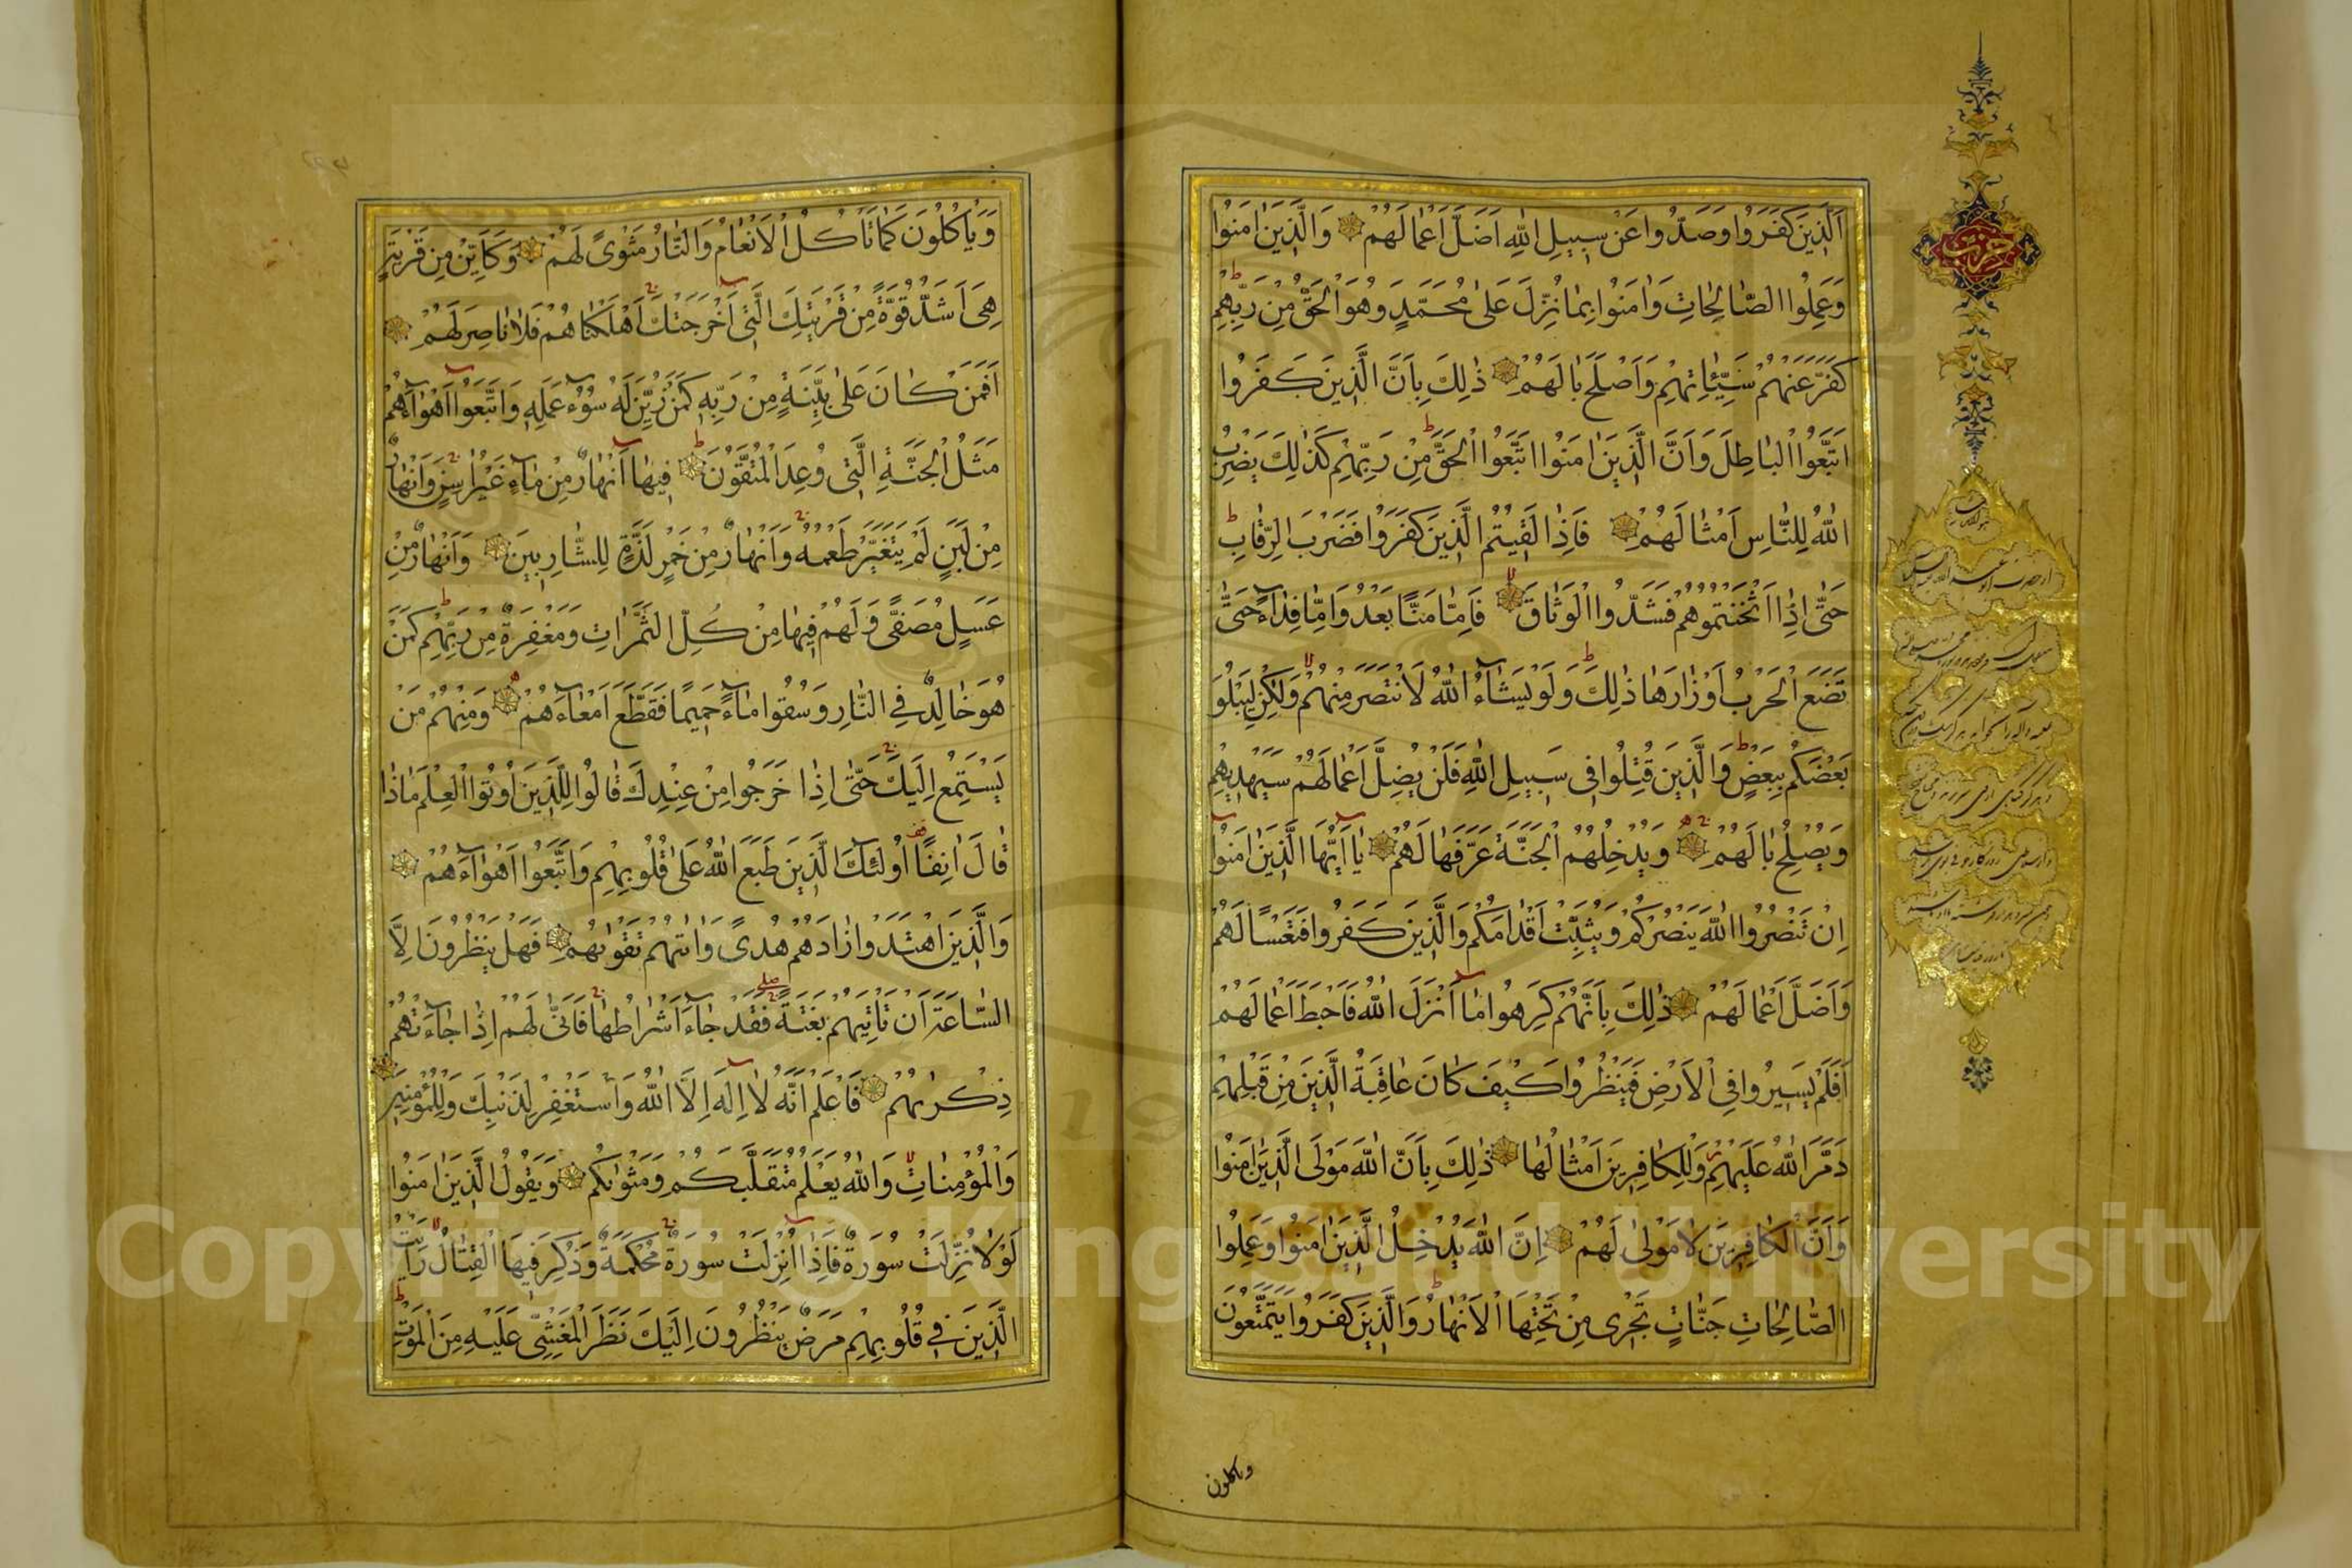 اَلَّذِينَ كَفَرُوا وَصَدُّوا عَنْ سَبِيلِ اللهِ اَضَلَّ اَعْمَالَهُمْ وَالَّذِينَ اٰمَنُوا
وَعَمِلُوا الصَّالِحَاتِ وَاٰمَنُوا بِمَا نُزِّلَ عَلٰى مُحَمَّدٍ وَهُوَ الْحَقُّ مِنْ رَبِّهِمْ
كَفَّرَ عَنْهُمْ سَيِّئَاتِهِمْ وَاَصْلَحَ بَالَهُمْ ذٰلِكَ بِاَنَّ الَّذِينَ كَفَرُوا
اتَّبَعُوا الْبَاطِلَ وَاَنَّ الَّذِينَ اٰمَنُوا اتَّبَعُوا الْحَقَّ مِنْ رَبِّهِمْ كَذٰلِكَ يَضْرِبُ
اللهُ لِلنَّاسِ اَمْثَالَهُمْ فَاِذَا لَقِيتُمُ الَّذِينَ كَفَرُوا فَضَرْبَ الرِّقَابِ
حَتّٰى اِذَا اَثْخَنْتُمُوهُمْ فَشُدُّوا الْوَثَاقَ فَاِمَّا مَنًّا بَعْدُ وَاِمَّا فِدَاءً حَتّٰى
تَضَعَ الْحَرْبُ اَوْزَارَهَا ذٰلِكَ وَلَوْ يَشَاءُ اللهُ لَانْتَصَرَ مِنْهُمْ وَلٰكِنْ لِيَبْلُوَ
بَعْضَكُمْ بِبَعْضٍ وَالَّذِينَ قُتِلُوا فِي سَبِيلِ اللهِ فَلَنْ يُضِلَّ اَعْمَالَهُمْ سَيَهْدِيهِمْ
وَيُصْلِحُ بَالَهُمْ وَيُدْخِلُهُمُ الْجَنَّةَ عَرَّفَهَا لَهُمْ يَا اَيُّهَا الَّذِينَ اٰمَنُوا
اِنْ تَنْصُرُوا اللهَ يَنْصُرْكُمْ وَيُثَبِّتْ اَقْدَامَكُمْ وَالَّذِينَ كَفَرُوا فَتَعْسًا لَهُمْ
وَاَضَلَّ اَعْمَالَهُمْ ذٰلِكَ بِاَنَّهُمْ كَرِهُوا مَا اَنْزَلَ اللهُ فَاَحْبَطَ اَعْمَالَهُمْ
اَفَلَمْ يَسِيرُوا فِي الْاَرْضِ فَيَنْظُرُوا كَيْفَ كَانَ عَاقِبَةُ الَّذِينَ مِنْ قَبْلِهِمْ
دَمَّرَ اللهُ عَلَيْهِمْ وَلِلْكَافِرِينَ اَمْثَالُهَا ذٰلِكَ بِاَنَّ اللهَ مَوْلَى الَّذِينَ اٰمَنُوا
وَاَنَّ الْكَافِرِينَ لَا مَوْلٰى لَهُمْ اِنَّ اللهَ يُدْخِلُ الَّذِينَ اٰمَنُوا وَعَمِلُوا
الصَّالِحَاتِ جَنَّاتٍ تَجْرِي مِنْ تَحْتِهَا الْاَنْهَارُ وَالَّذِينَ كَفَرُوا يَتَمَتَّعُونَ
وياكلون
وَيَاْكُلُونَ كَمَا تَاْكُلُ الْاَنْعَامُ وَالنَّارُ مَثْوًى لَهُمْ وَكَاَيِّنْ مِنْ قَرْيَةٍ
هِيَ اَشَدُّ قُوَّةً مِنْ قَرْيَتِكَ الَّتِي اَخْرَجَتْكَ اَهْلَكْنَاهُمْ فَلَا نَاصِرَ لَهُمْ
اَفَمَنْ كَانَ عَلٰى بَيِّنَةٍ مِنْ رَبِّهِ كَمَنْ زُيِّنَ لَهُ سُوءُ عَمَلِهِ وَاتَّبَعُوا اَهْوَاءَهُمْ
مَثَلُ الْجَنَّةِ الَّتِي وُعِدَ الْمُتَّقُونَ فِيهَا اَنْهَارٌ مِنْ مَاءٍ غَيْرِ اٰسِنٍ وَاَنْهَارٌ
مِنْ لَبَنٍ لَمْ يَتَغَيَّرْ طَعْمُهُ وَاَنْهَارٌ مِنْ خَمْرٍ لَذَّةٍ لِلشَّارِبِينَ وَاَنْهَارٌ مِنْ
عَسَلٍ مُصَفًّى وَلَهُمْ فِيهَا مِنْ كُلِّ الثَّمَرَاتِ وَمَغْفِرَةٌ مِنْ رَبِّهِمْ كَمَنْ
هُوَ خَالِدٌ فِي النَّارِ وَسُقُوا مَاءً حَمِيمًا فَقَطَّعَ اَمْعَاءَهُمْ وَمِنْهُمْ مَنْ
يَسْتَمِعُ اِلَيْكَ حَتّٰى اِذَا خَرَجُوا مِنْ عِنْدِكَ قَالُوا لِلَّذِينَ اُوتُوا الْعِلْمَ مَاذَا
قَالَ اٰنِفًا اُولٰئِكَ الَّذِينَ طَبَعَ اللهُ عَلٰى قُلُوبِهِمْ وَاتَّبَعُوا اَهْوَاءَهُمْ
وَالَّذِينَ اهْتَدَوْا زَادَهُمْ هُدًى وَاٰتٰيهُمْ تَقْوٰيهُمْ فَهَلْ يَنْظُرُونَ اِلَّا
السَّاعَةَ اَنْ تَاْتِيَهُمْ بَغْتَةً فَقَدْ جَاءَ اَشْرَاطُهَا فَاَنّٰى لَهُمْ اِذَا جَاءَتْهُمْ
ذِكْرٰيهُمْ فَاعْلَمْ اَنَّهُ لَا اِلٰهَ اِلَّا اللهُ وَاسْتَغْفِرْ لِذَنْبِكَ وَلِلْمُؤْمِنِينَ
وَالْمُؤْمِنَاتِ وَاللهُ يَعْلَمُ مُتَقَلَّبَكُمْ وَمَثْوٰيكُمْ وَيَقُولُ الَّذِينَ اٰمَنُوا
لَوْلَا نُزِّلَتْ سُورَةٌ فَاِذَا اُنْزِلَتْ سُورَةٌ مُحْكَمَةٌ وَذُكِرَ فِيهَا الْقِتَالُ رَاَيْتَ
الَّذِينَ فِي قُلُوبِهِمْ مَرَضٌ يَنْظُرُونَ اِلَيْكَ نَظَرَ الْمَغْشِيِّ عَلَيْهِ مِنَ الْمَوْتِ
Copyright © King Saud University